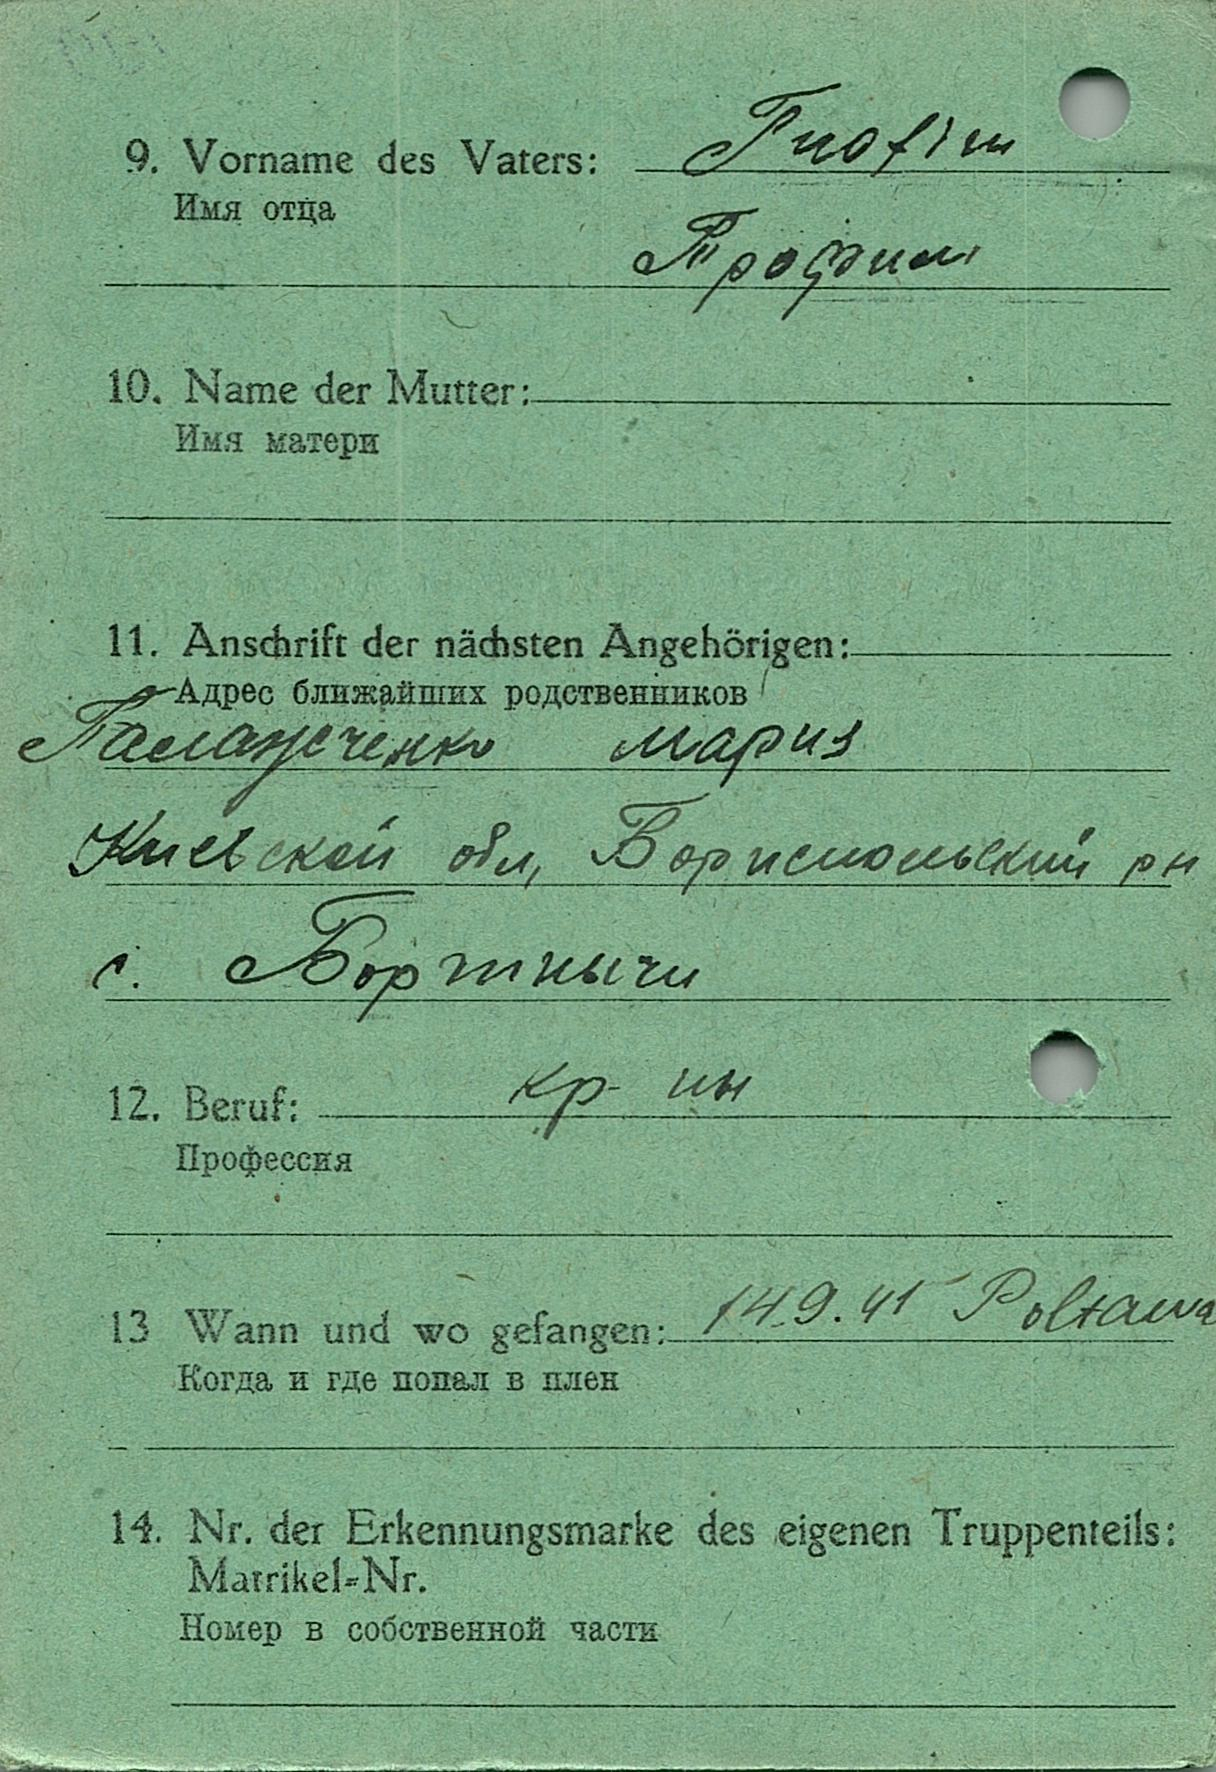 9. Vorname des Vaters: Trofim
Имя отца
Трофим
10. Name der Mutter:
Имя матери
11. Anschrift der nächsten Angehörigen:
Адрес ближайших родственников
Мария
Киевской обл, Бориспольский рн
с. Бортнычи
12. Beruf: кр-ин
Профессия
13 Wann und wo gefangen: 14.9.41 Poltawa
Когда и где попал в плен
14. Nr. der Erkennungsmarke des eigenen Truppenteils:
Matrikel-Nr.
Номер в собственной части